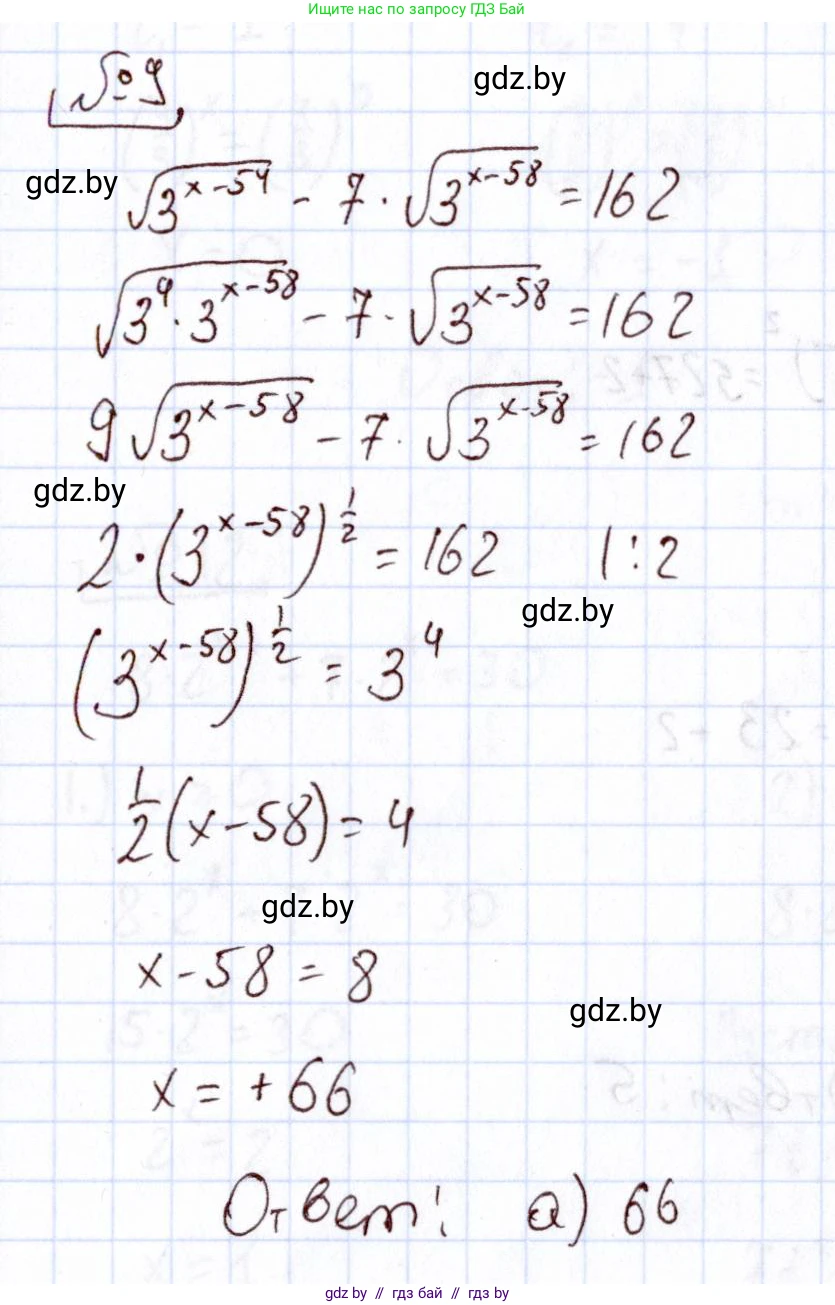 Ищите нас по запросу ГДЗ Бай
№9
gdz.by
gdz.by
√(3^(x-54)) - 7·√(3^(x-58)) = 162
√(3^4·3^(x-58)) - 7·√(3^(x-58)) = 162
9√(3^(x-58)) - 7·√(3^(x-58)) = 162
gdz.by
2·(3^(x-58))^(1/2) = 162 |:2
gdz.by
(3^(x-58))^(1/2) = 3^4
1/2(x-58) = 4
gdz.by
x-58 = 8
gdz.by
x = +66
Ответ: а) 66
gdz.by // гдз бай // гдз by